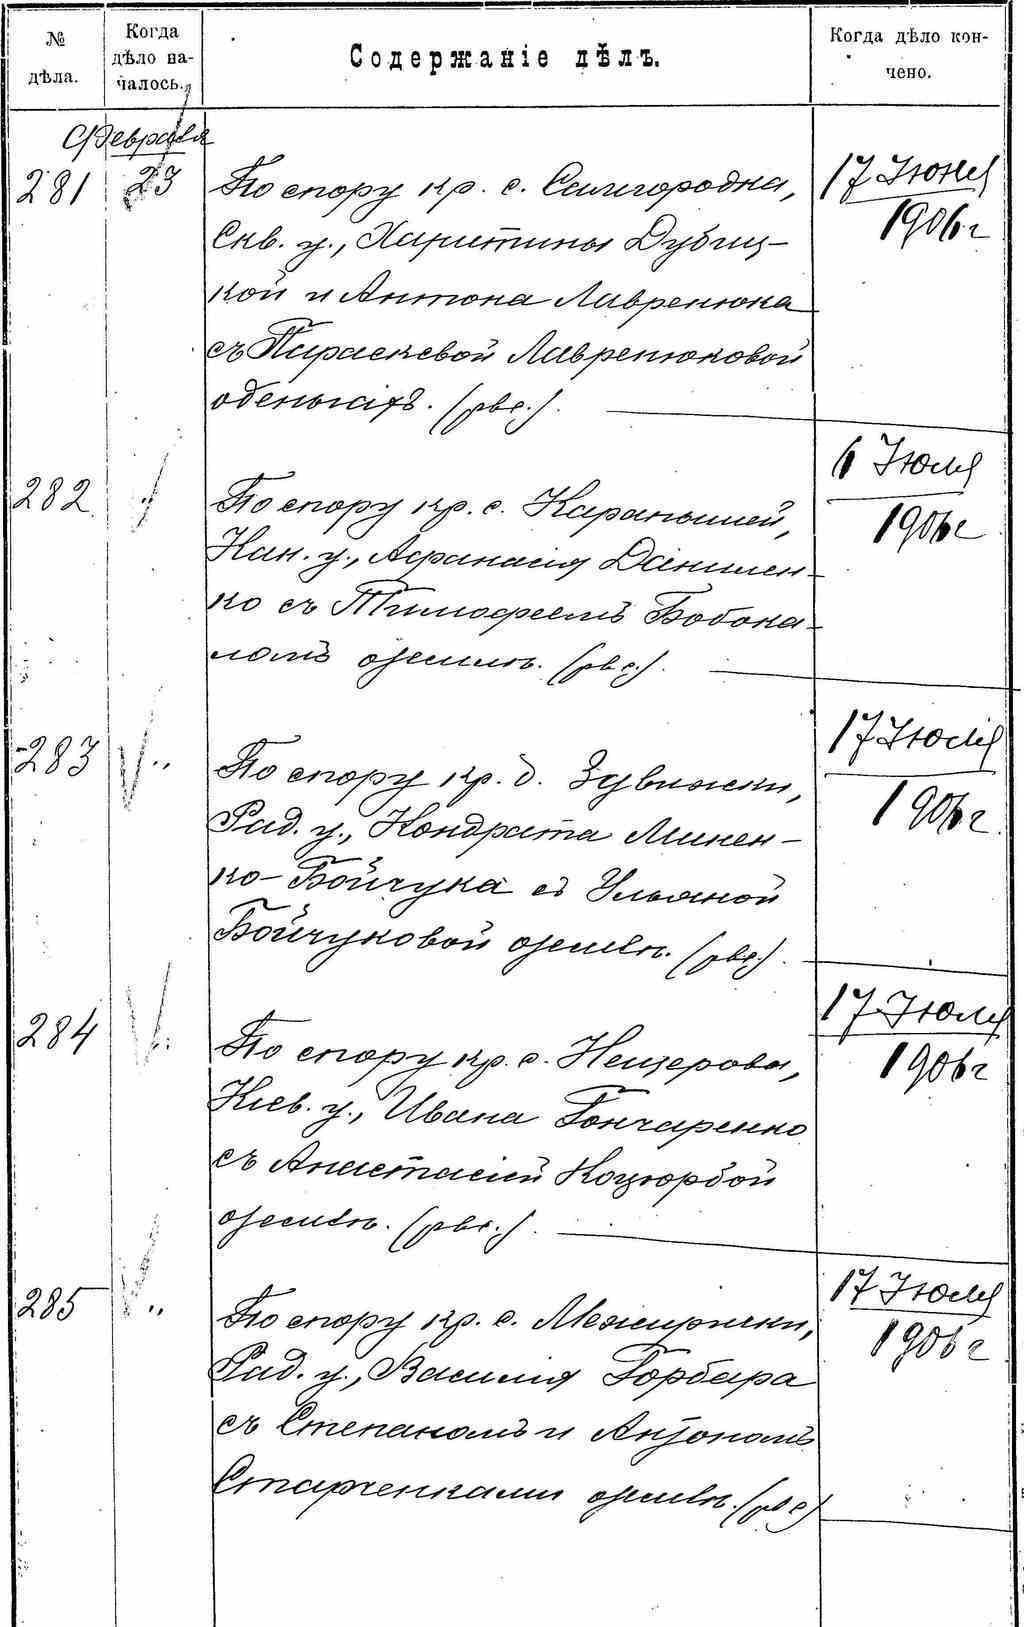 № дѣла.
Когда дѣло началось.
Содержаніе дѣлъ.
Когда дѣло кончено.
Февраля
281
23
По спору кр. с. Самгородка,
Скв. у., Харитины Дубиц-
кой и Антона Лавренюка
съ Параскевой Лавренюковой
о деньгахъ. (рвс.).
17 Июня
1906 г
282
"
По спору кр. с. Карапышей,
Кан. у., Афанасія Данилен-
ко съ Тимофеемъ Бобока-
ломъ о землѣ. (рвс.).
6 Июля
1906 г
283
"
По спору кр. д. Зувижки,
Рад. у., Кондрата Минен-
ко-Бойчука съ Ульяной
Бойчуковой о землѣ. (рвс.).
17 Июля
1906 г.
284
"
По спору кр. с. Нещерова,
Кіев. у., Ивана Гончаренко
съ Анастасіей Коцюрбой
о землѣ. (рвс.).
17 Июля
1906 г
285
"
По спору кр. с. Межирички,
Рад. у., Василія Горбара
съ Степаномъ и Антономъ
Старченками о землѣ. (рвс)
17 Июля
1906 г